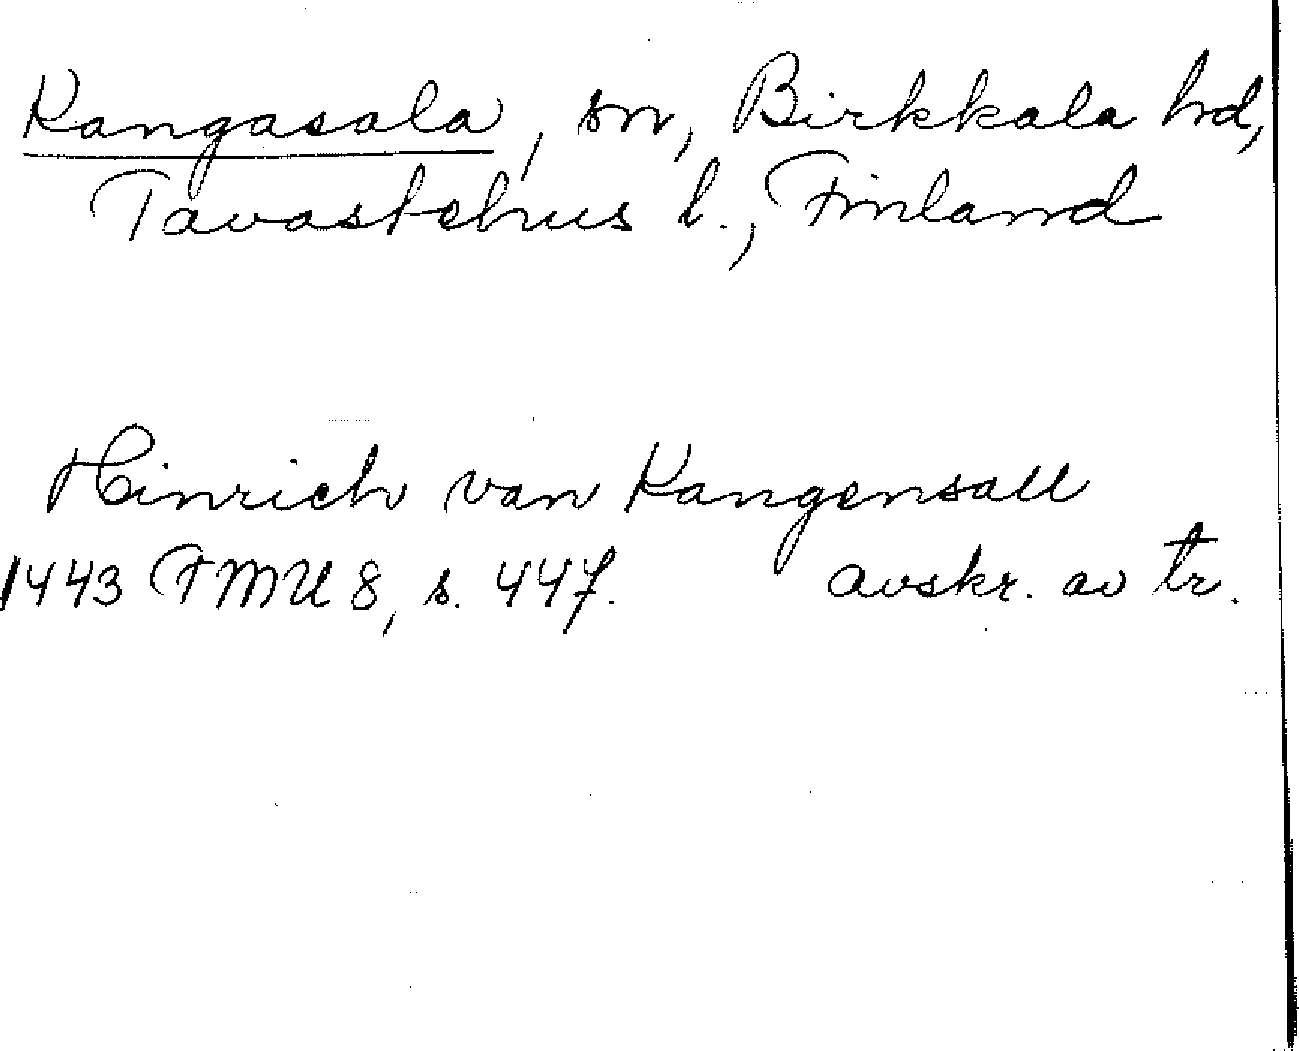 Kangasala, sn, Birkkala hd,
Tavastehus l., Finland
Hinrich van Kangensall
1443 FMU 8, s. 447. avskr. av tr.